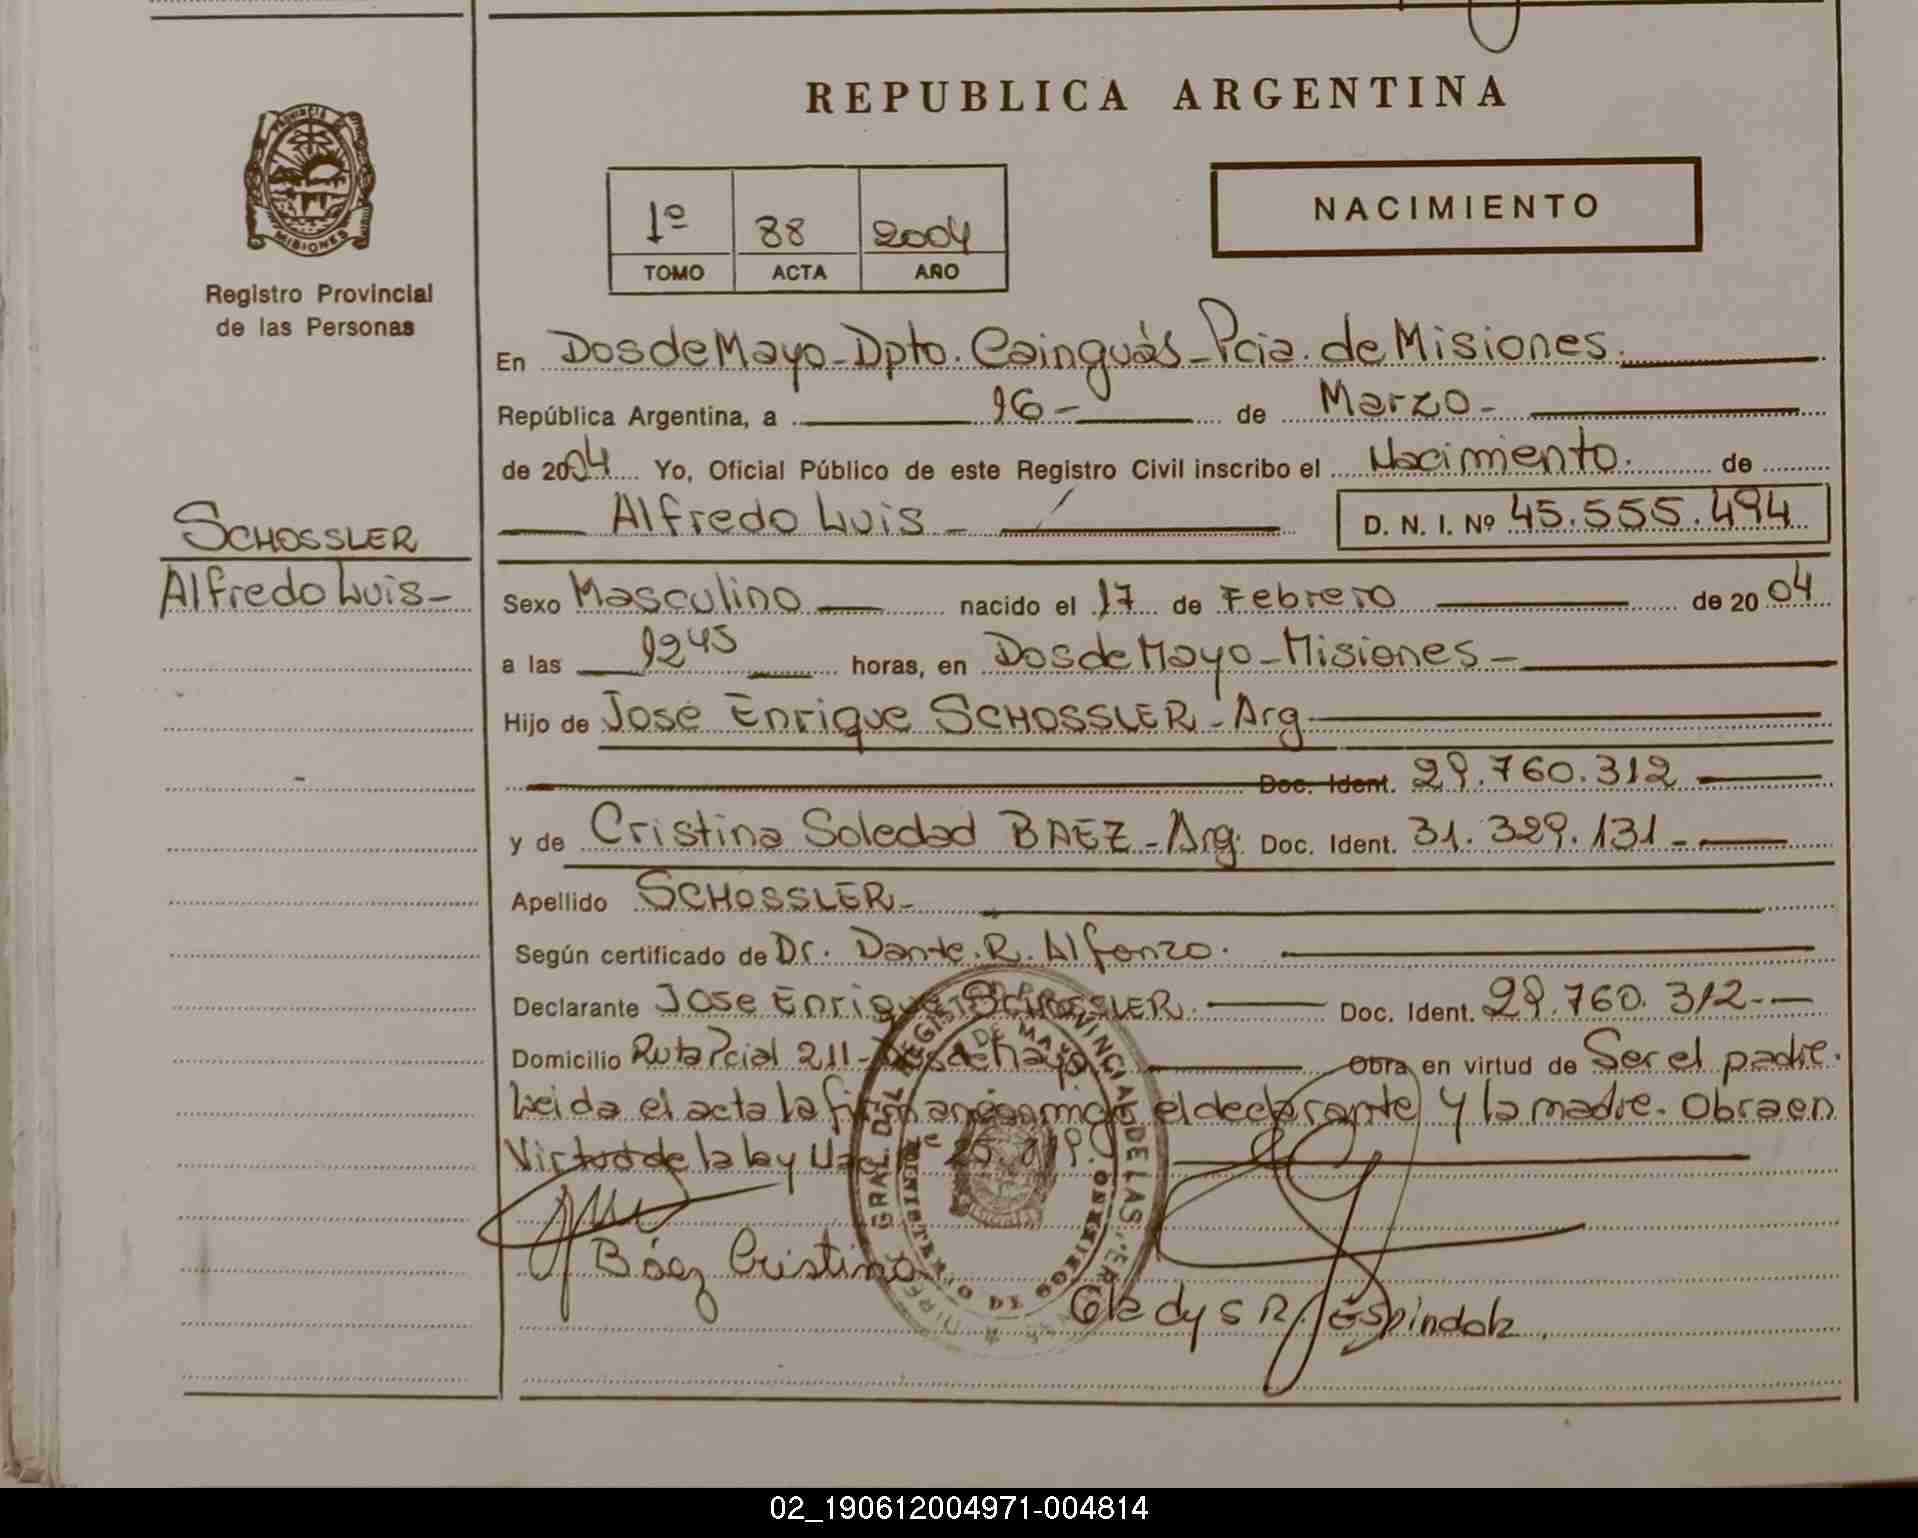 REPUBLICA ARGENTINA
PROVINCIA DE
MISIONES
Registro Provincial
de las Personas
1º 88 2004
TOMO ACTA AÑO
NACIMIENTO
En Dos de Mayo - Dpto. Cainguás - Pcia. de Misiones.
República Argentina, a 16 - de Marzo -
de 2004 Yo, Oficial Público de este Registro Civil inscribo el Nacimiento. de
Alfredo Luis - D. N. I. Nº 45.555.494
SCHOSSLER
Alfredo Luis -
Sexo Masculino nacido el 17 de Febrero de 2004
a las 1245 horas, en Dos de Mayo - Misiones -
Hijo de José Enrique SCHOSSLER - Arg
Doc. Ident. 29.760.312
y de Cristina Soledad BAEZ - Arg. Doc. Ident. 31.329.131 -
Apellido SCHOSSLER -
Según certificado de Dr. Dante. R. Alfonzo.
Declarante Jose Enrique SCHOSSLER. Doc. Ident. 29.760.312 -
Domicilio Ruta Pcial 211 - Dos de Mayo Obra en virtud de Ser el padre.
Leida el acta la firman el declarante y la madre. Obra en
Virtud de la ley Nac. Nº 25.819.
Báez Cristina
Gladys R. Espindola.
02_190612004971-004814